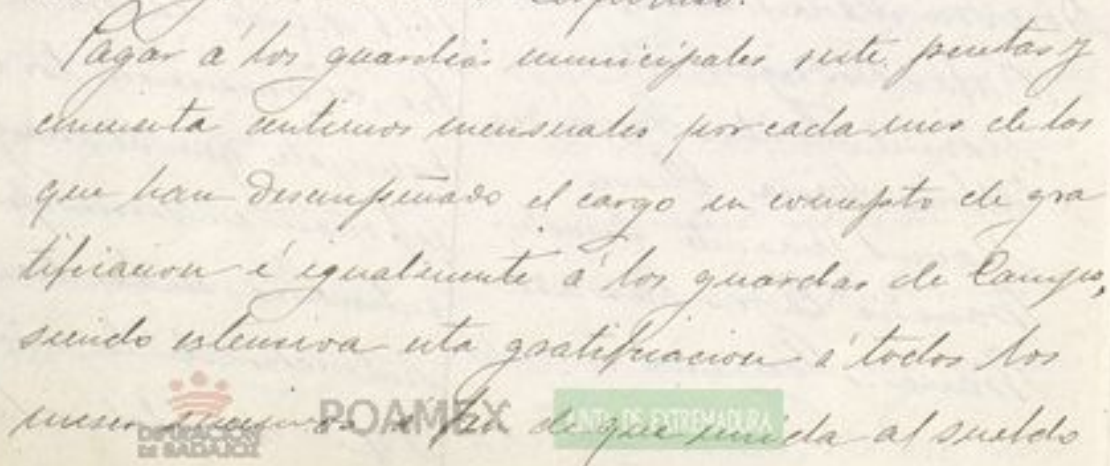 Pagar á los guardias municipales siete pesetas y
cincuenta centimos mensuales por cada mes de los
que han desempeñado el cargo en concepto de gra
tificacion é igualmente á los guardas de Campo,
siendo estensiva esta gratificacion á todos los
meses sucesivos a fin de que unida al sueldo
DIPUTACIÓN DE BADAJOZ
POAMEX
JUNTA DE EXTREMADURA